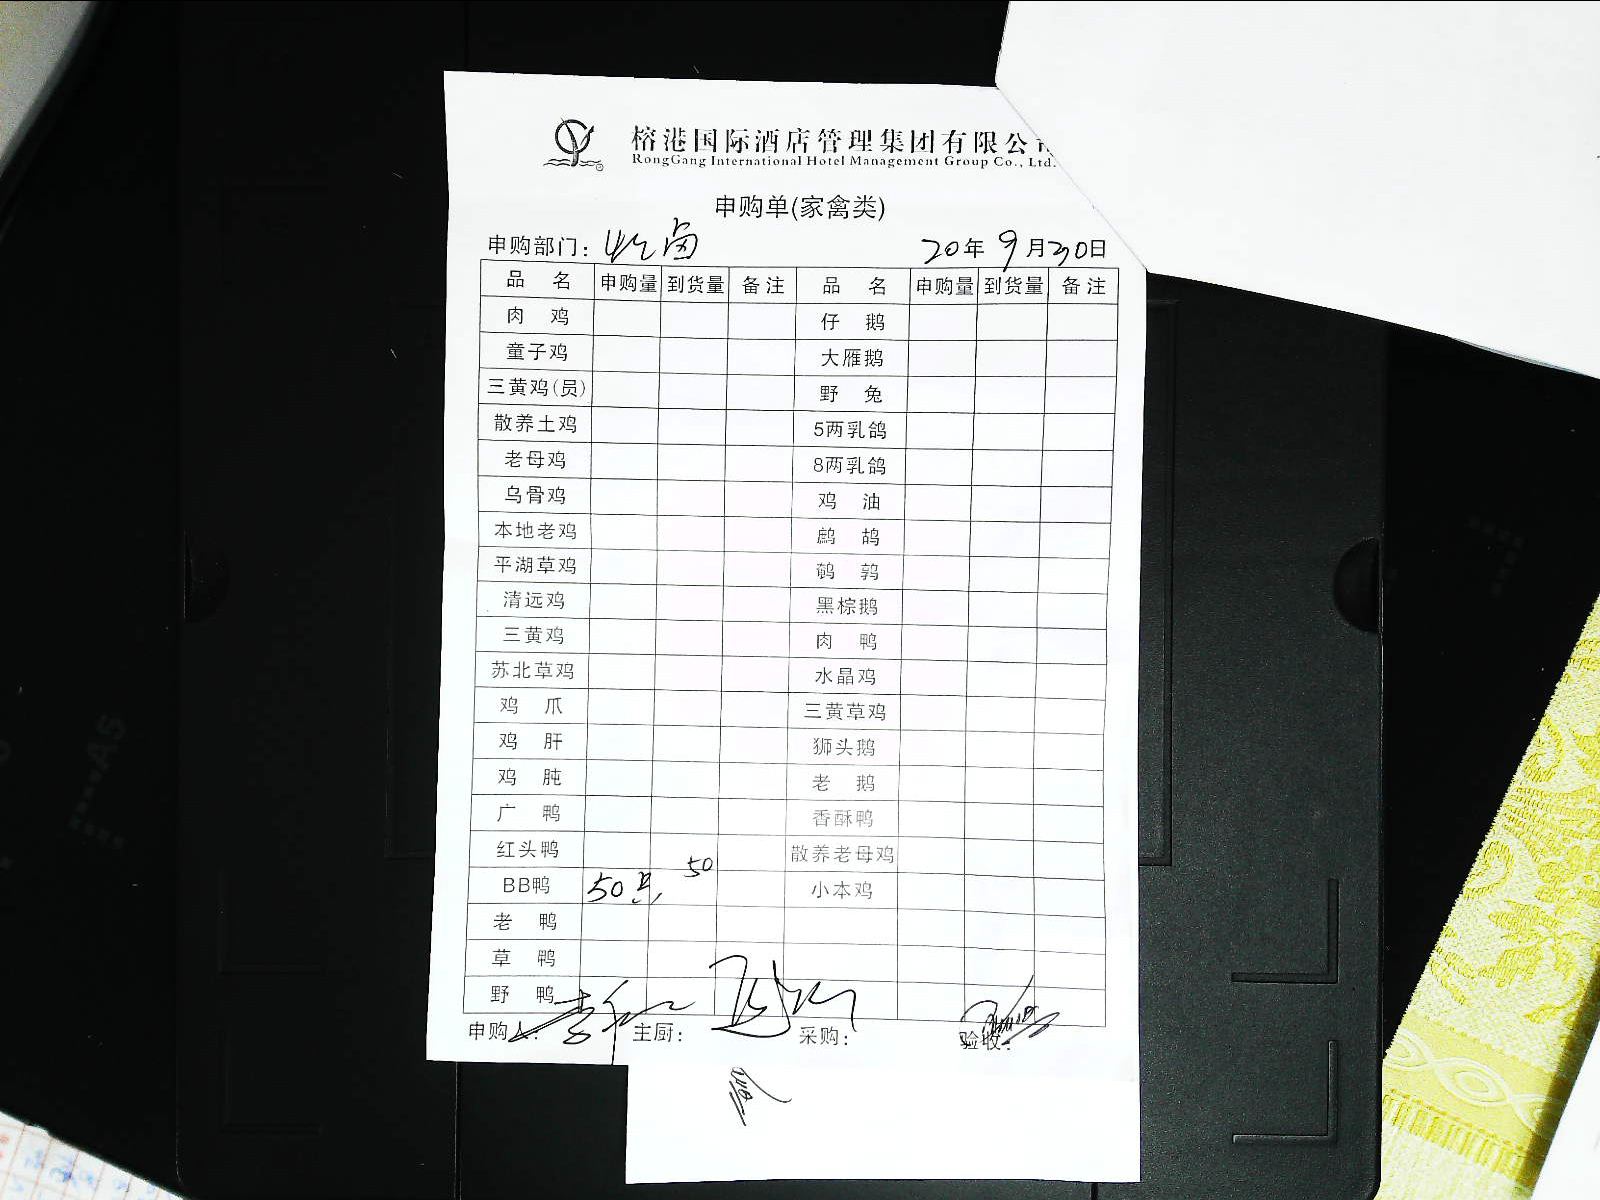 榕港国际酒店管理集团有限公司
RongGang International Hotel Management Group Co., Ltd.
申购单(家禽类)
申购部门: 卤 20年9月30日
品 名 申购量 到货量 备注 品 名 申购量 到货量 备注
肉 鸡 仔 鹅
童子鸡 大雁鹅
三黄鸡(员) 野 兔
散养土鸡 5两乳鸽
老母鸡 8两乳鸽
乌骨鸡 鸡 油
本地老鸡 鹧 鸪
平湖草鸡 鹌 鹑
清远鸡 黑棕鹅
三黄鸡 肉 鸭
苏北草鸡 水晶鸡
鸡 爪 三黄草鸡
鸡 肝 狮头鹅
鸡 肫 老 鹅
广 鸭 香酥鸭
红头鸭 散养老母鸡
BB鸭 50只 50 小本鸡
老 鸭
草 鸭
野 鸭
申购人: 主厨: 采购: 验收: